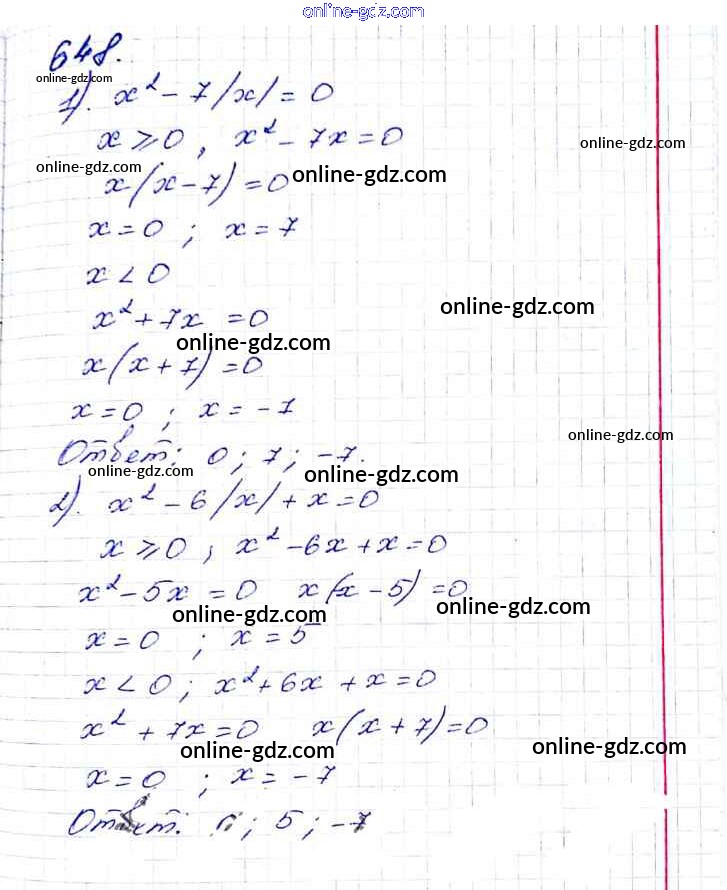 online-gdz.com
648.
online-gdz.com
1). x² - 7/x/ = 0
x ⩾ 0, x² - 7x = 0
online-gdz.com
online-gdz.com
online-gdz.com
x(x - 7) = 0
x = 0 ; x = 7
x < 0
online-gdz.com
x² + 7x = 0
online-gdz.com
x(x + 7) = 0
x = 0 ; x = -7
online-gdz.com
Ответ: 0; 7; -7.
online-gdz.com
online-gdz.com
2). x² - 6/x/ + x = 0
x ⩾ 0, x² - 6x + x = 0
x² - 5x = 0 x(x - 5) = 0
online-gdz.com
online-gdz.com
x = 0 ; x = 5
x < 0; x² + 6x + x = 0
x² + 7x = 0 x(x + 7) = 0
online-gdz.com
online-gdz.com
x = 0 ; x = -7
Ответ: 0; 5; -7